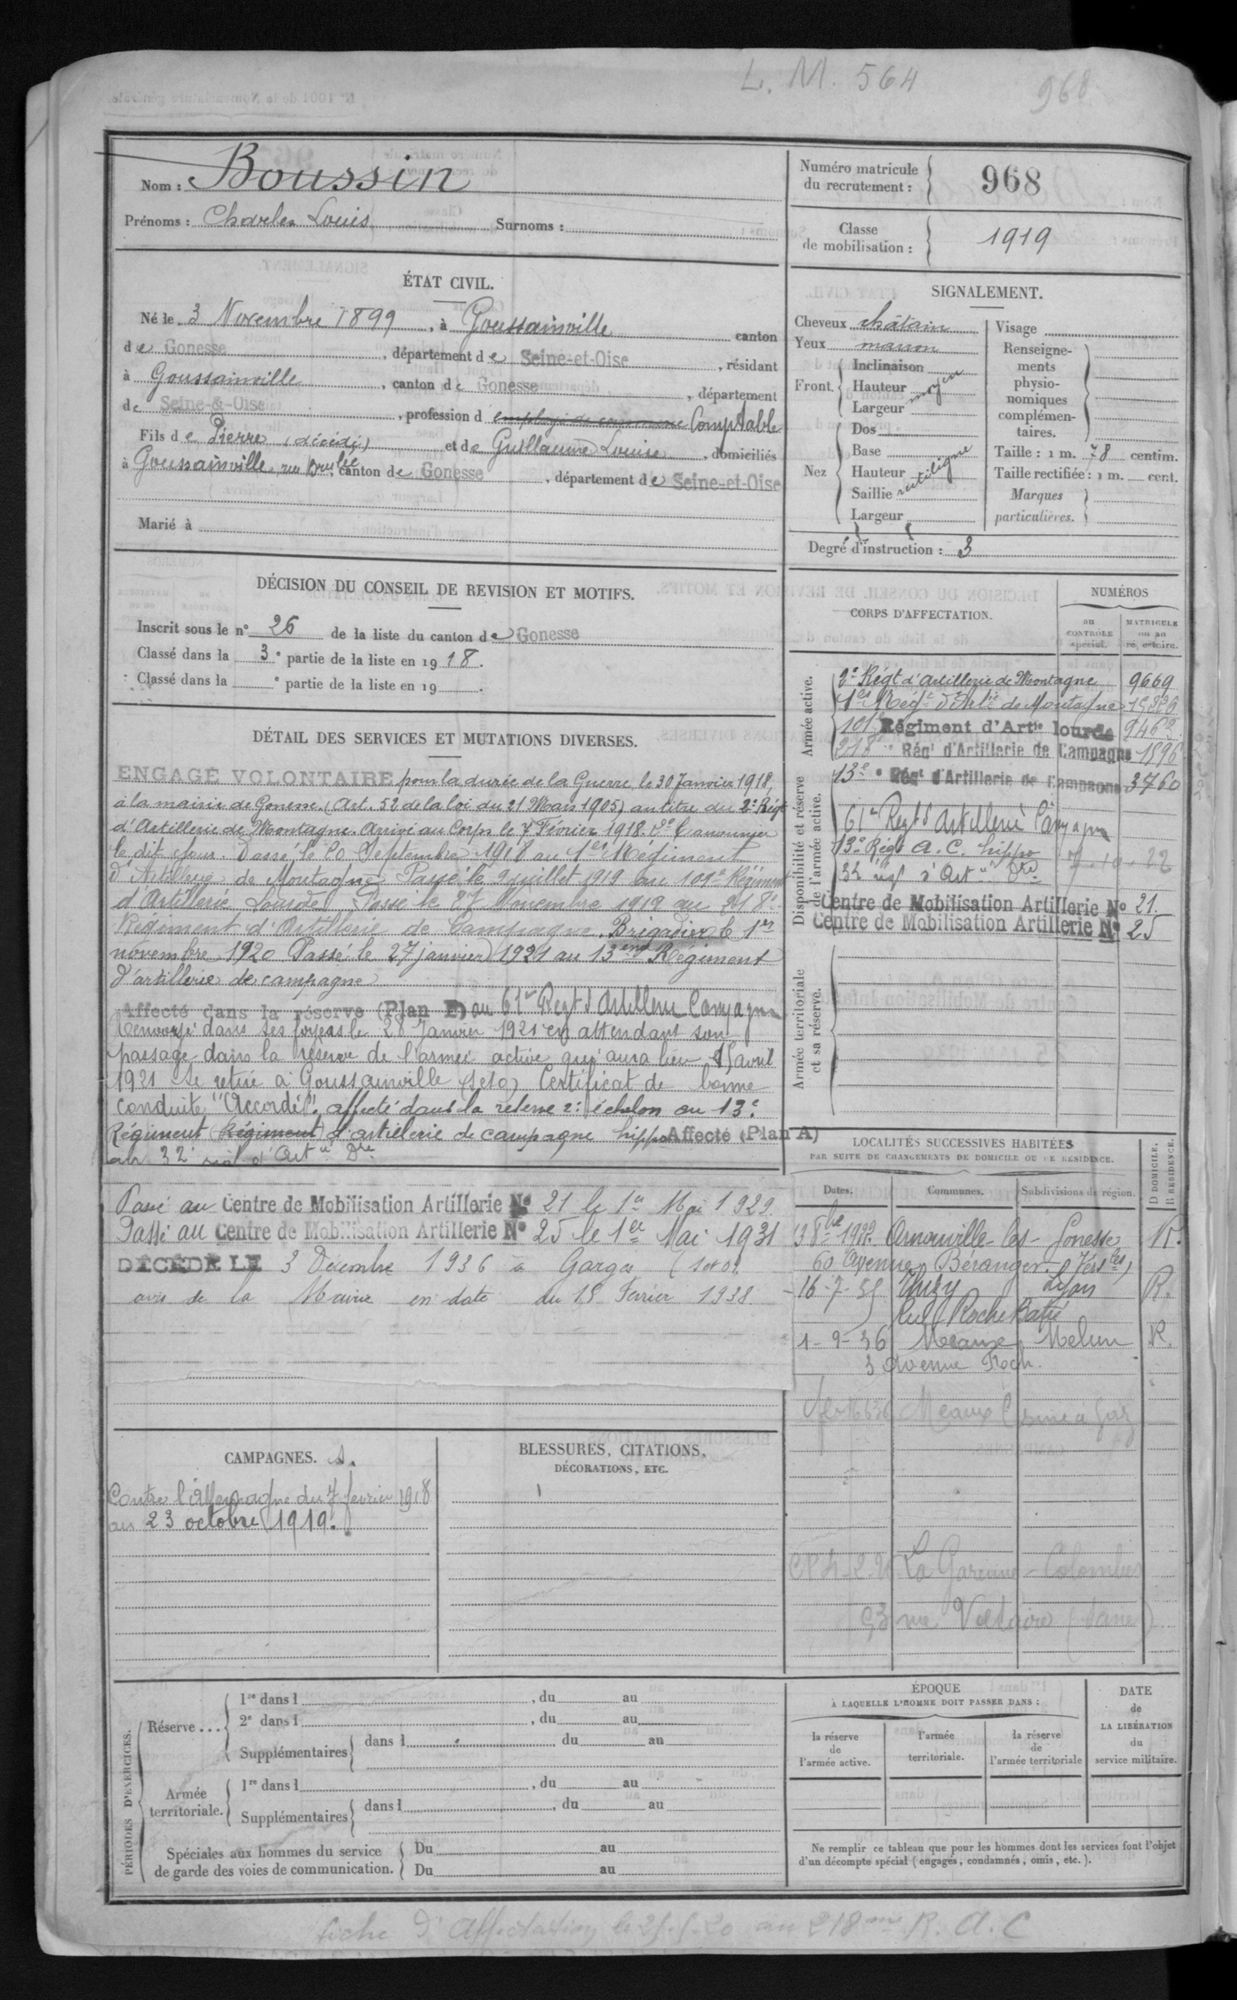 L. M. 564
968
Nom : Boussin
Prénoms : Charles Louis Surnoms :
Numéro matricule du recrutement : 968
Classe de mobilisation : 1919
ÉTAT CIVIL.
Né le 3 Novembre 1899, à Goussainville canton
de Gonesse, département de Seine-et-Oise, résidant
à Goussainville, canton de Gonesse, département
de Seine-&-Oise, profession d Comptable
Fils de Pierre (décédé) et de Guillaume Louise, domiciliés
à Goussainville, canton de Gonesse, département de Seine-et-Oise
Marié à
SIGNALEMENT.
Cheveux châtain
Yeux marron
Front. Inclinaison
Hauteur moyen
Largeur
Nez Dos
Base
Hauteur rectiligne
Saillie
Largeur
Visage
Renseigne-
ments
physio-
nomiques
complémen-
taires.
Taille : 1 m. 78 centim.
Taille rectifiée : 1 m. cent.
Marques
particulières.
Degré d'instruction : 3
DÉCISION DU CONSEIL DE REVISION ET MOTIFS.
Inscrit sous le n° 26 de la liste du canton de Gonesse
Classé dans la 3e partie de la liste en 1918.
Classé dans la e partie de la liste en 19 .
CORPS D'AFFECTATION.
NUMÉROS
au CONTRÔLE spécial.
MATRICULE ou au répertoire.
Armée active.
2e Régt d'Artillerie de Montagne 9669
1er Régt d'Artie de Montagne
101e Régiment d'Artie lourde 9462
218e Régt d'Artillerie de Campagne 1896
Disponibilité et réserve de l'armée active.
13e Régt d'Artillerie de Campagne 3760
61er Regt d'Artillerie Campagne
13e Régt A. C. hippo 7-10-22
Centre de Mobilisation Artillerie No 21.
Centre de Mobilisation Artillerie No 25
Armée territoriale et sa réserve.
DÉTAIL DES SERVICES ET MUTATIONS DIVERSES.
ENGAGÉ VOLONTAIRE pour la durée de la Guerre, le 30 Janvier 1918,
à la mairie de Gonesse (Art. 52 de la loi du 21 Mars 1905) au titre du 2e Régt
d'Artillerie de Montagne. Arrivé au Corps le 7 Février 1918. 2e Canonnier
le dit jour. Passé le 20 Septembre 1918 au 1er Régiment
d'Artillerie de Montagne. Passé le 9 juillet 1919 au 101e Régiment
d'Artillerie Lourde. Passé le 27 Novembre 1919 au 218e
Régiment d'Artillerie de Campagne. Brigadier le 1er
novembre 1920 Passé le 27 janvier 1921 au 13eme Régiment
d'artillerie de campagne
Affecté dans la réserve (Plan E) au 61er Regt d'Artillerie Campagne
Renvoyé dans ses foyers le 28 Janvier 1921 en attendant son
passage dans la réserve de l'armée active qui aura lieu 15 avril
1921 Se retire à Goussainville (S et O) Certificat de bonne
conduite "Accordé". affecté dans la réserve 2e échelon au 13e
Régiment (Régiment) d'artillerie de campagne hippo Affecté (Plan A)
Passé au Centre de Mobilisation Artillerie No 21 le 1er Mai 1929.
Passé au Centre de Mobilisation Artillerie No 25 le 1er Mai 1931
DÉCÉDÉ LE 3 Décembre 1936 à Garges (S et O)
avis de la Mairie en date du 15 Février 1938.
LOCALITÉS SUCCESSIVES HABITÉES
PAR SUITE DE CHANGEMENTS DE DOMICILE OU DE RÉSIDENCE.
Dates. Communes. Subdivisions de région. D DOMICILE. R RÉSIDENCE.
1922. Arnouville-les-Gonesse R.
60 Avenue Béranger
16-7-35 Lyon R.
1-9-36 Meaux Melun R.
3 Avenue Foch.
Meaux Usine à Gaz
La Garenne-Colombes
93 rue Voltaire
CAMPAGNES.
Contre l'Allemagne du 7 février 1918
au 23 octobre 1919.
BLESSURES, CITATIONS,
DÉCORATIONS, ETC.
PÉRIODES D'EXERCICES.
Réserve ... 1re dans l , du au
2e dans l , du au
Supplémentaires dans l , du au
Armée territoriale. 1re dans l , du au
Supplémentaires dans l , du au
Spéciales aux hommes du service
de garde des voies de communication. Du au
Du au
ÉPOQUE
À LAQUELLE L'HOMME DOIT PASSER DANS :
la réserve de l'armée active.
l'armée territoriale.
la réserve de l'armée territoriale
DATE de LA LIBÉRATION du service militaire.
Ne remplir ce tableau que pour les hommes dont les services font l'objet
d'un décompte spécial (engagés, condamnés, omis, etc.).
fiche d'affectation le 25-5-20 au 218me R. A. C